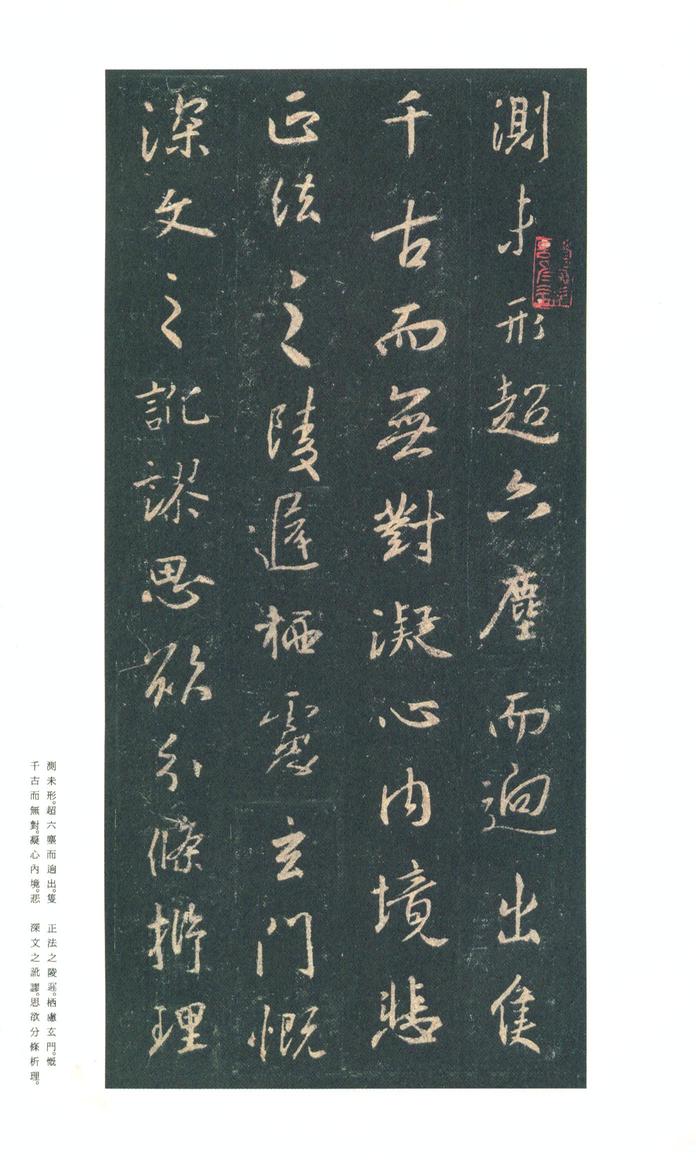 測未形超六塵而迥出隻
千古而無對凝心內境悲
正法之陵遲栖慮玄門慨
深文之訛謬思欲分條析理
測未形。超六塵而迥出。隻
千古而無對。凝心內境。悲
正法之陵遲。栖慮玄門。慨
深文之訛謬。思欲分條析理。